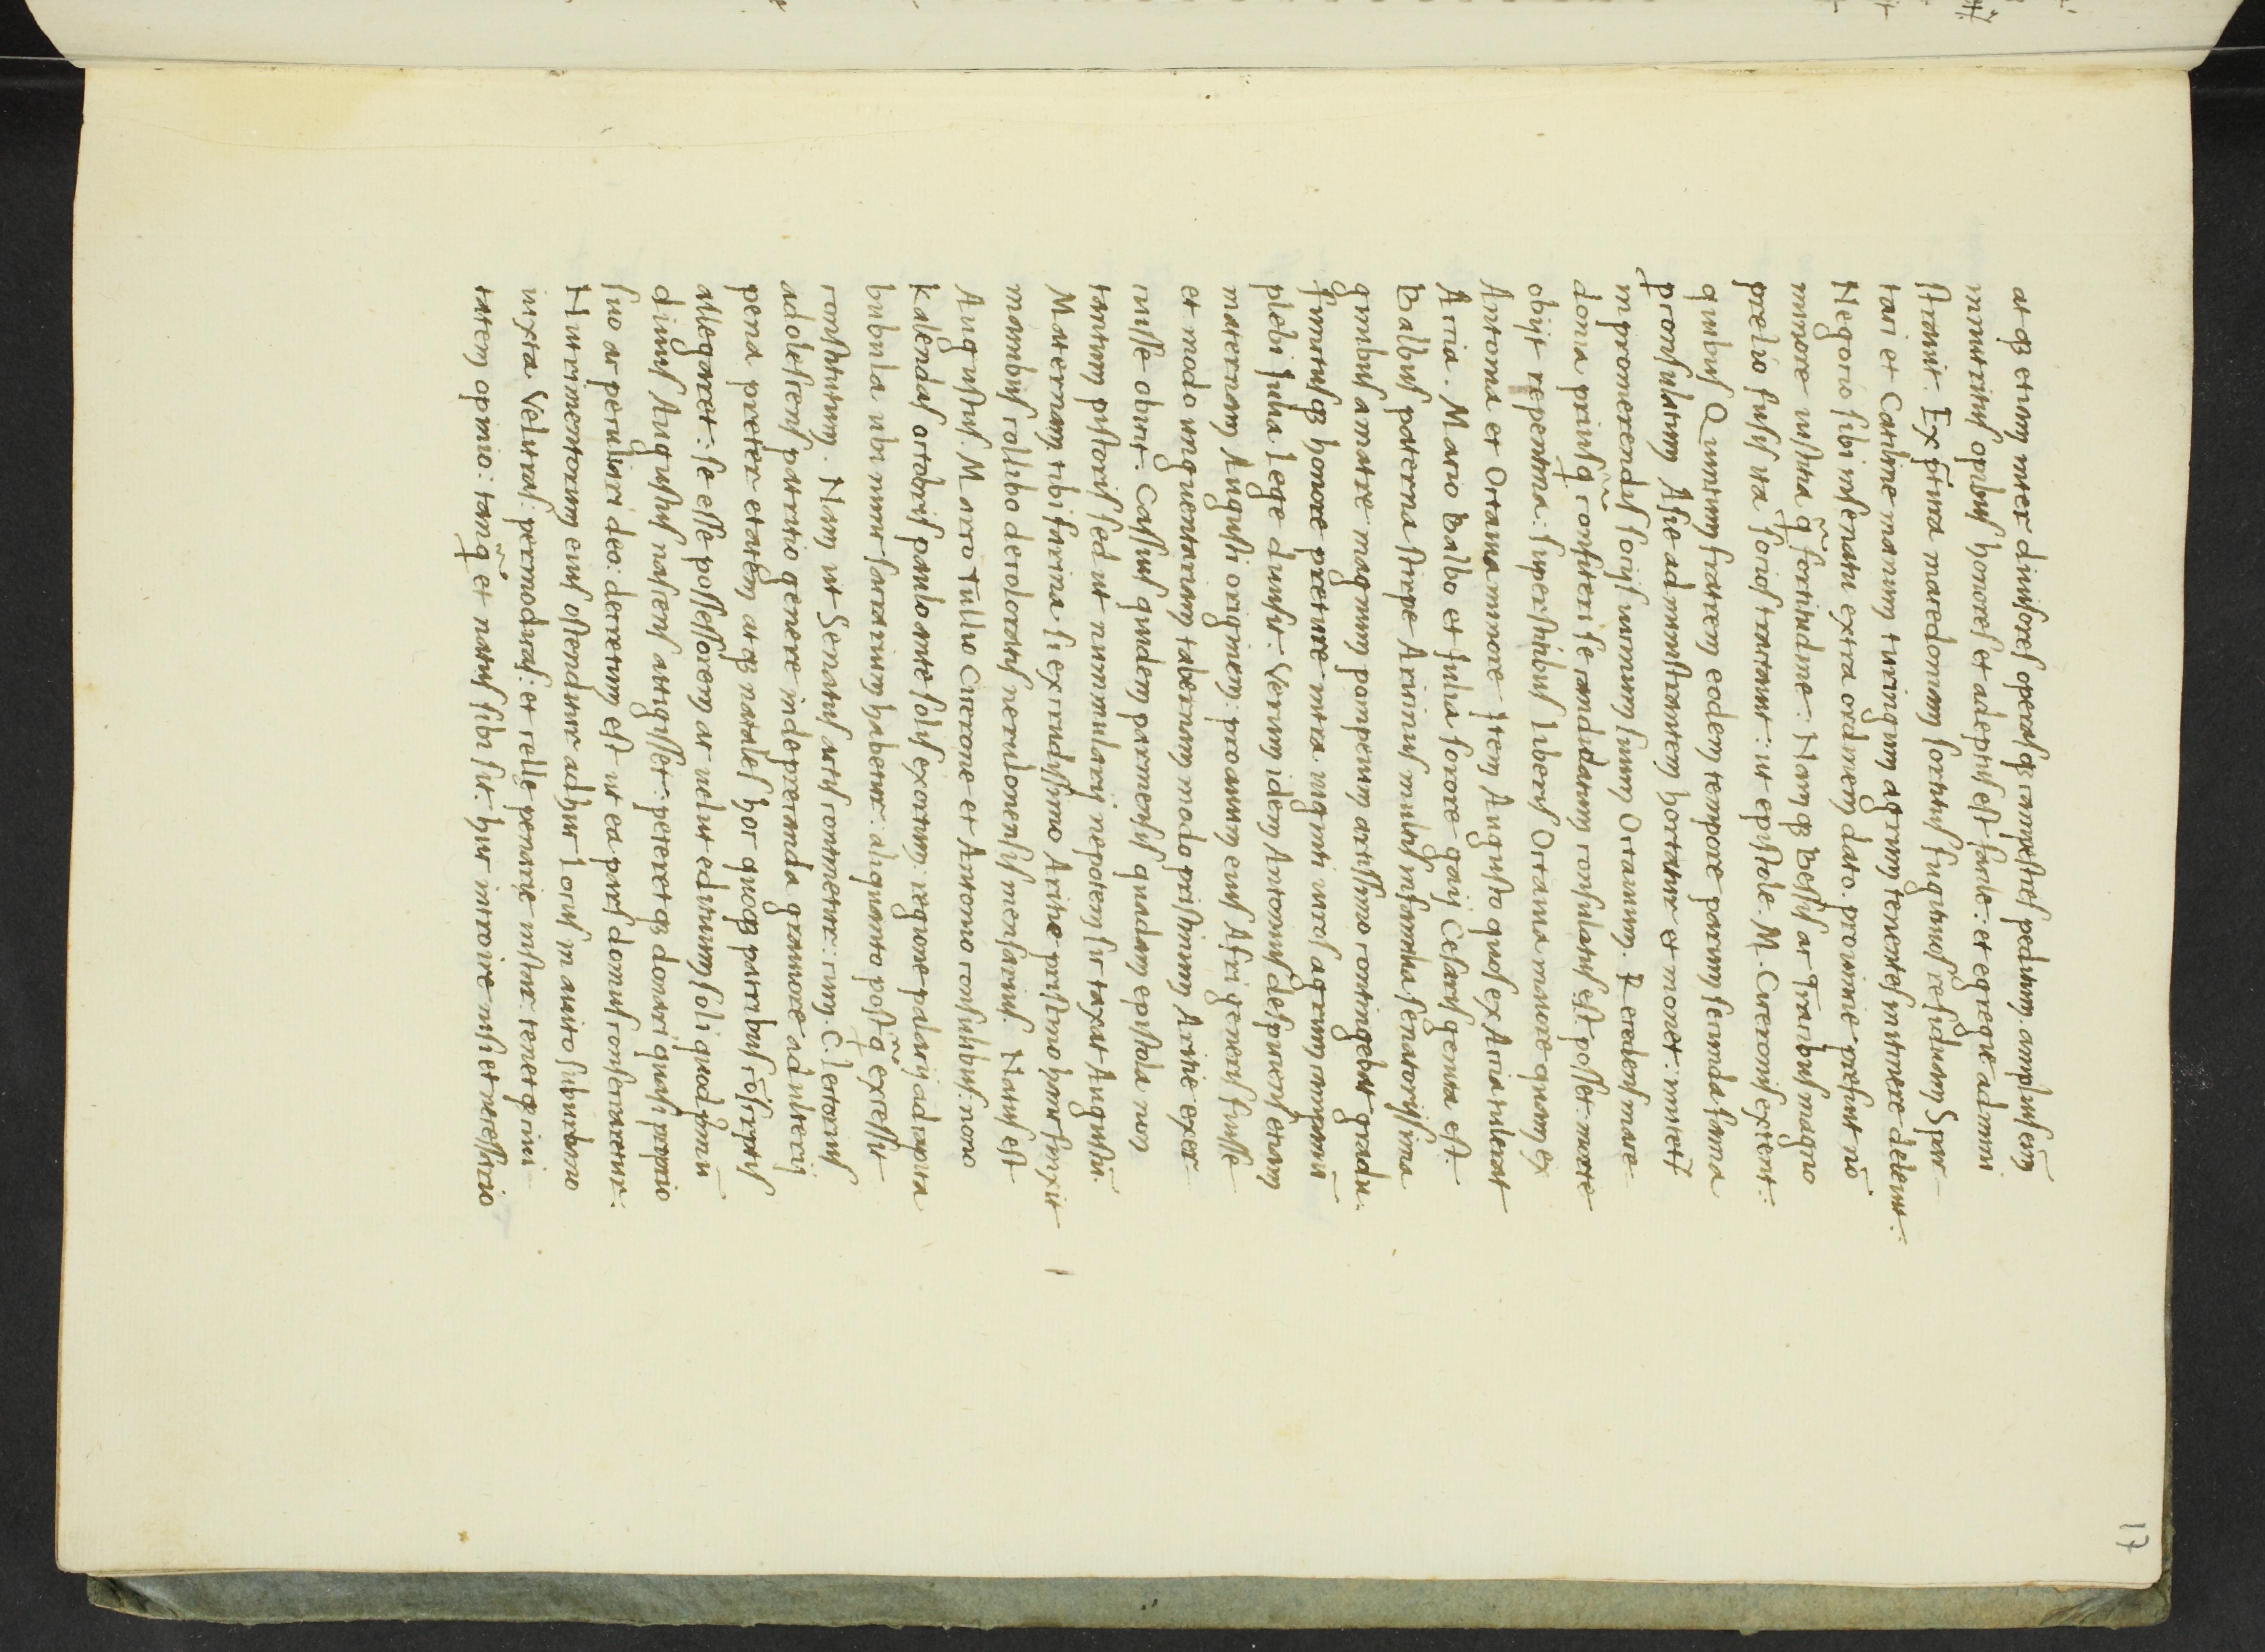 17
at qȝ etiam inter diuisores operasqȝ campestres proditum. amplis eīm
innutritus opibus honores et adeptus est facile: et egregie admini
strauit. Ex p̄tura macedoniam sortitus fugitiuos residuam Spar-
taci et Catiline manum turinum agrum tenentes in itinere deleuit:
Negocio sibi in senatu extra ordinem dato. prouincie prefuit nō
minore iusticia q̃ fortitudine: Nam qȝ Bessis ac Tracibus magno
prelio fusis ita socios tractauit: ut epistole M. Ciceronis extent:
quibus Quintum fratrem eodem tempore parum secunda fama
proconsulatum Asie administrantem hortatur et monet: imitet᷑
in promerendis socijs uicinum suum Octauium. Decedens mace-
donia priusq̃ profiteri se candidatum consulatus posset: morte
obijt repentina: superstitibus liberis Octauia maiore quam ex
Ancaria et Octauia minore item Augusto quos ex Accia tulerat
Accia. Marco Balbo et Julia sorore gaij Cesaris genita est.
Balbus paterna stirpe Aricinus multis in familia senatorijs ima
ginibus a matre magnum pompeium artissimo contingebat gradu:
functusqȝ honore preture inter uiginti uiros agrum campanū
plebi Julia lege diuisit. Verum idem Antonius despiciens etiam
maternam Augusti originem: proauum eius Afri generis fuisse
et modo unguentariam tabernam modo pistrinum Aricie exer-
cuisse obicit. Cassius quidem parmensis quadam epistola non
tantum pistoris sed ut nummularij nepotem sic taxat Augustū:
Maternam tibi farina si ex crudissimo Aricie pistrino hanc finxit
manibus collibo decoloratis nerulonensis mensarius. Natus est
Augustus. Marco Tullio Cicerone et Antonio consulibus: nono
kalendas octobris paulo ante solis exortum: regione palacij ad capita
bubula ubi nunc sacrarium habetur: aliquanto postq̃ excessit
constitutum. Nam ut Senatus actis continetur: cum. C. lectorius
adolescens patricio genere in deprecanda grauiore adulterij
pena preter etatem atqȝ natales hoc quoqȝ patribus cōscriptis
allegaret: se esse possessorem ac uelut edituum soli quod primū
diuus Augustus nascens attigisset: peteretqȝ donari quasi proprio
suo ac peculiari deo. decretum est ut ea pars domus consecraretur:
Nutrimentorum eius ostenditur adhuc locus in auito suburbano
iuxta Velitras: permodicus: et celle penarie instar: tenet qȝ uici
tatem opinio: tanq̃ et natus sibi sit. huc introire nisi et necessario